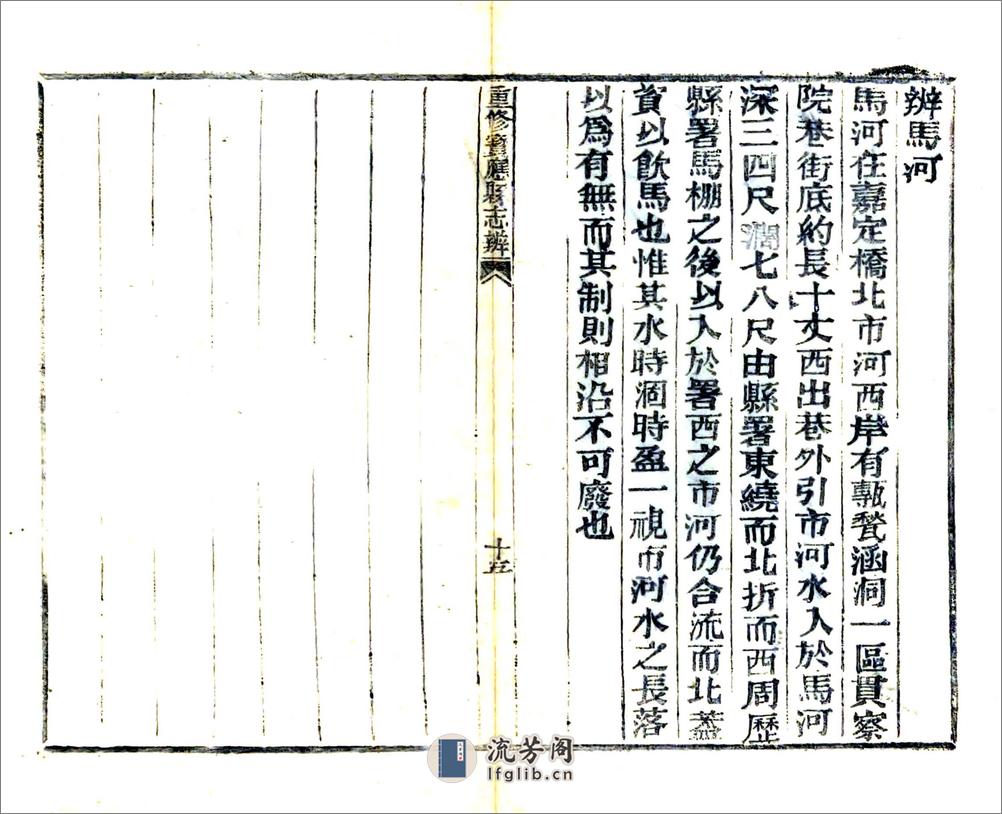 辨馬河
馬河在嘉定橋北市河西岸有甎甃涵洞一區貫察
院巷街底約長十丈西出巷外引市河水入於馬河
深三四尺濶七八尺由縣署東繞而北折而西周歷
縣署馬棚之後以入於署西之市河仍合流而北蓋
資以飲馬也惟其水時涸時盈一視市河水之長落
以為有無而其制則相沿不可廢也
重修寶應縣志辨
十五
流芳阁
lfglib.cn